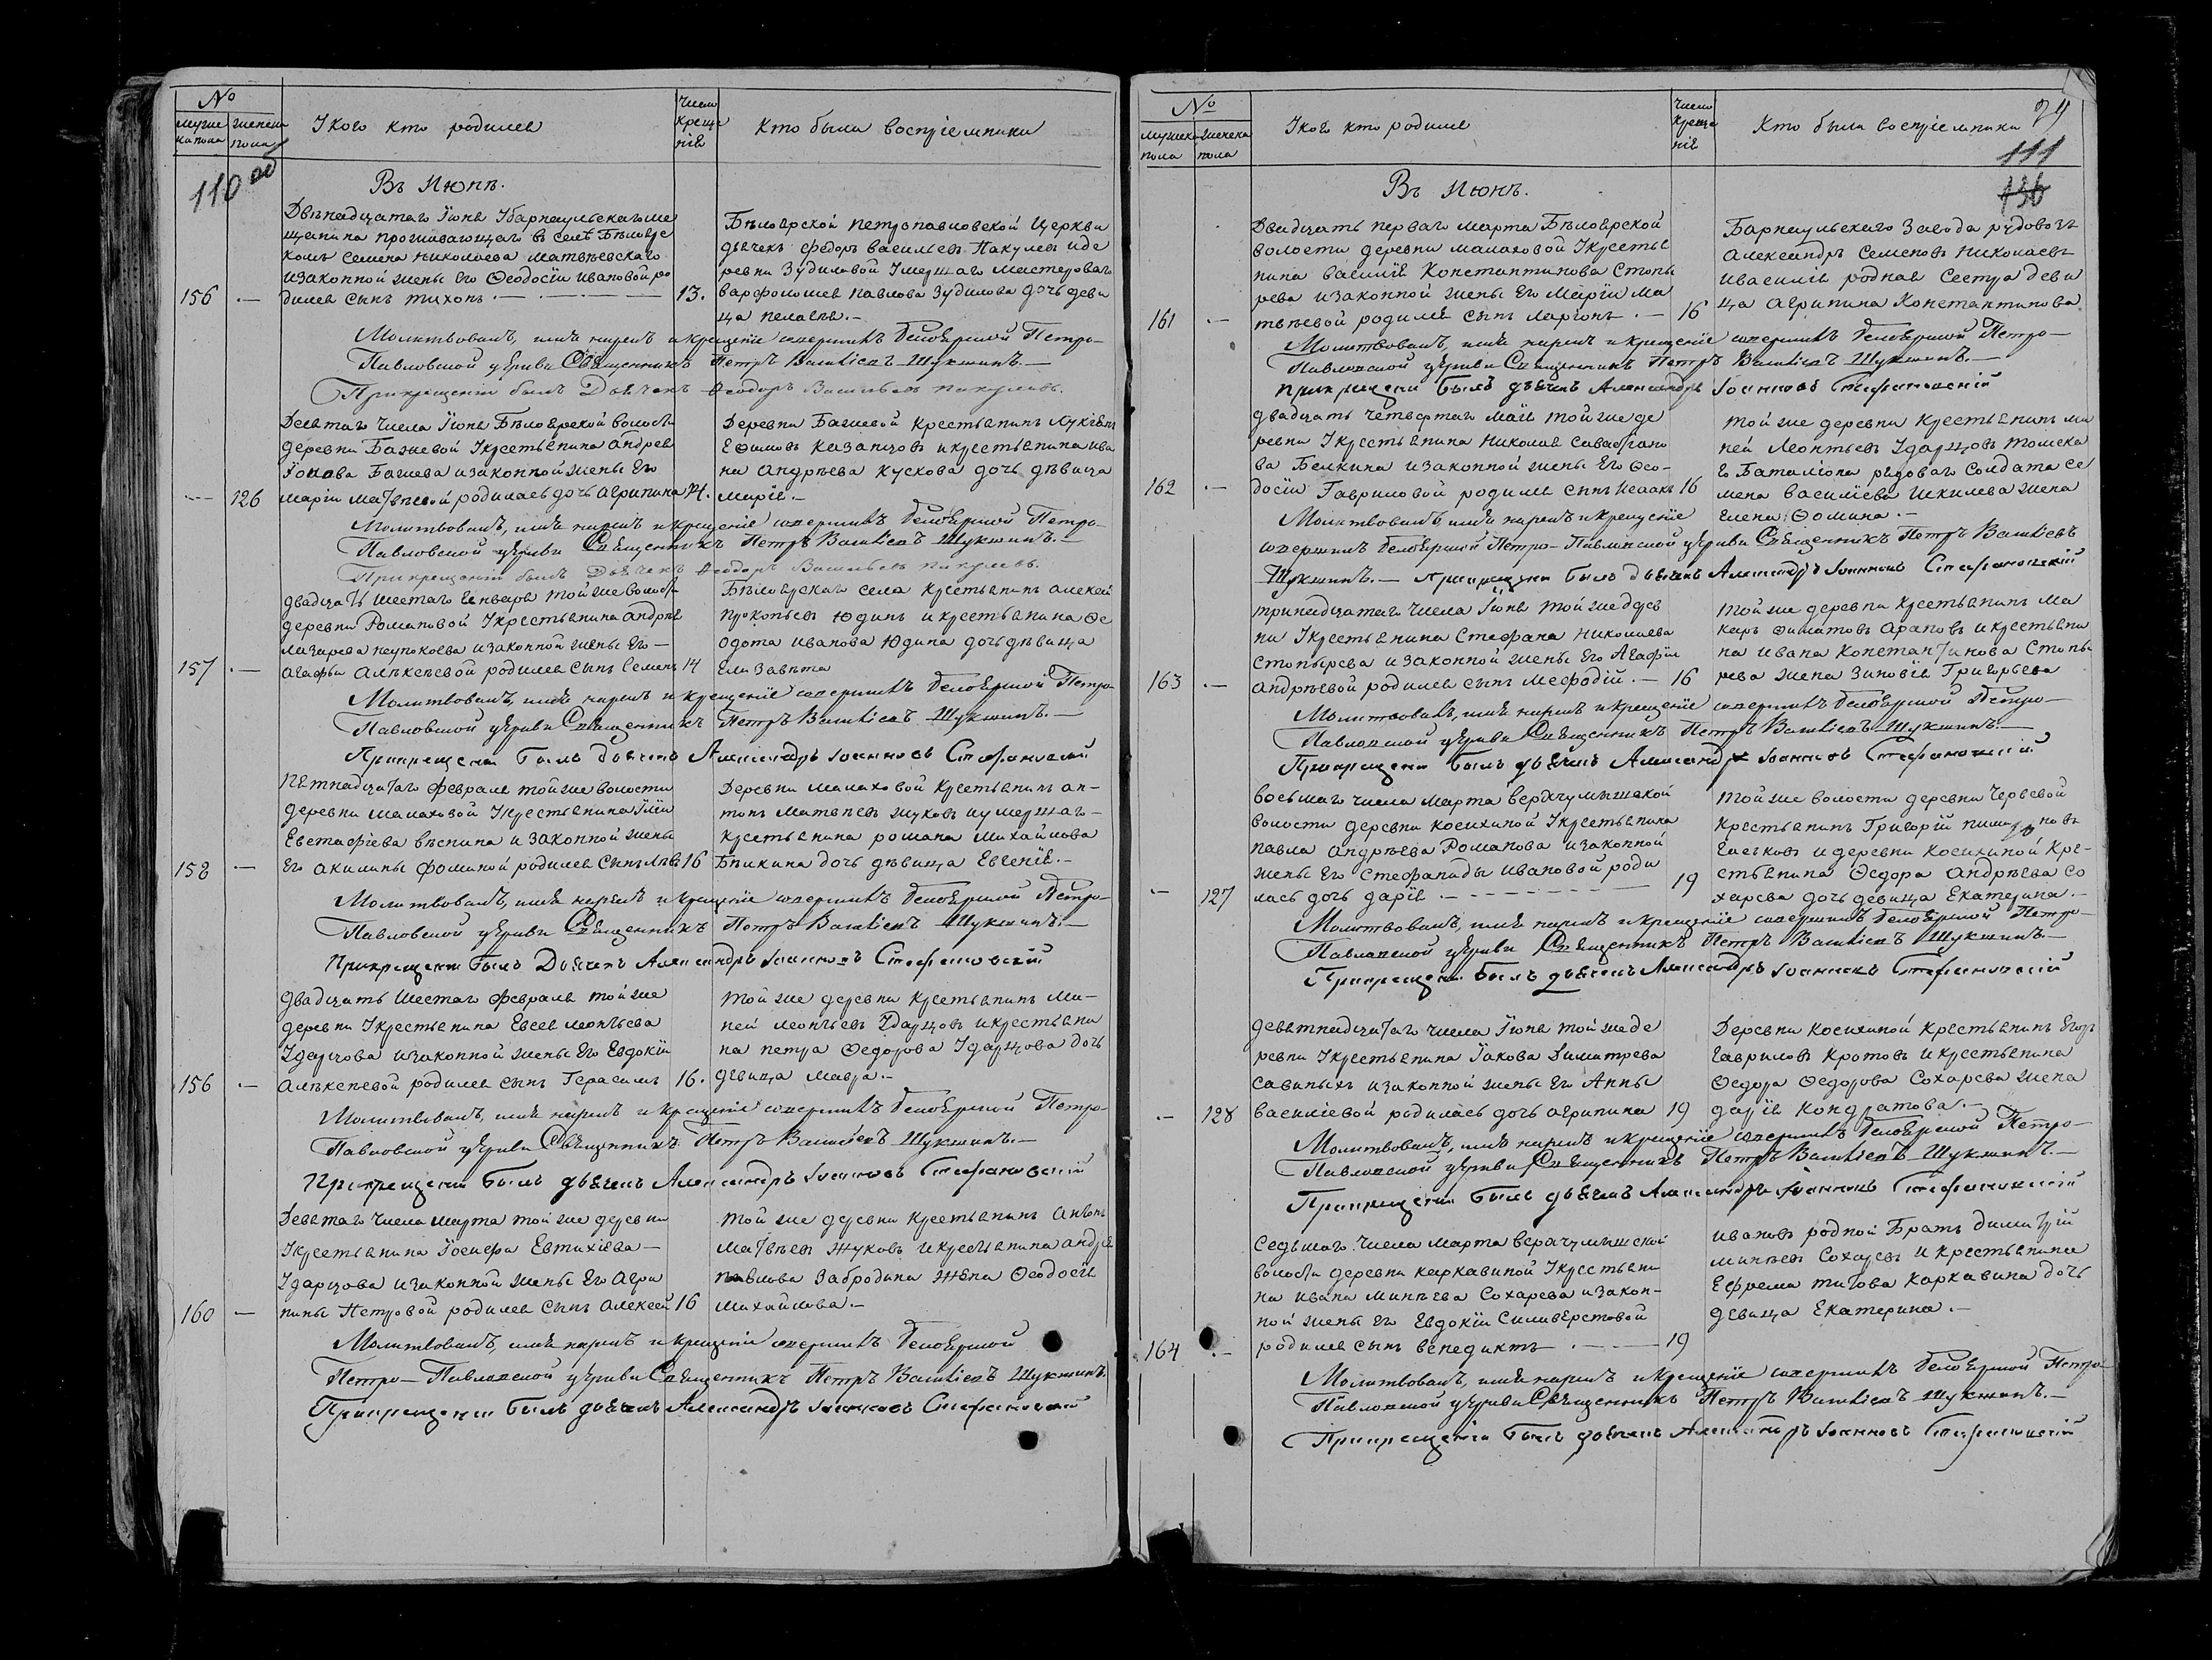 №
мужескапола
женска пола
У кого кто родился
Число креще нiя
Кто были воспрiемники
110 об
Въ Июнѣ.
Двѣнадцатаго Iюня У барнаульскагоме
щанина проживающаго въ селѣ Бѣлояр
комъ Семена николаева матвѣевскаго
изаконной жены его Ѳеодосiи ивановой ро
156 — дился сынъ тихонъ. — 13.
Бѣлоярской петропавловской Церкви
дьячекъ федоръ васильевъ Пакулевъ иде
ревни Зудиловой Умершаго мастероваго
варфоломея павлова Зудилова дочь деви
ца пелагея.—
Молитвовалъ, имя нарекъ и крещенiе совершилъ Белоярской Петро-
Павловской церкви Священникъ Петръ Васильевъ Шукшинъ.—
При крещенiи былъ Дьячекъ Ѳеодоръ Васильевъ Пакулевъ.
Десятаго Числа Iюня Бѣлоярской волости
деревни Бажевой Укрестьянина андрея
Iонава Бажева изаконной жены Его
— 126 марiи матвѣевой родилась дочь агрипина 14.
Деревни Бажевой Крестьянинъ Лукiянъ
Ефимовъ Казанцовъ икрестьянина ива
на андрѣева кускова дочь дѣвица
марiя.—
Молитвовалъ, имя нарекъ и крещенiе совершилъ Белоярской Петро-
Павловской церкви Священникъ Петръ Васильевъ Шукшинъ.—
При крещенiи былъ Дьячекъ Ѳеодоръ Васильевъ Пакулевъ.
двадцать шестаго Генваря той же волости
деревни Романовой Укрестьянина андрѣя
лазарева неупокоева изаконной жены Его —
157 — агафьи алѣксѣевой родился сынъ Семенъ 14
Бѣлоярскаго села крестьянинъ алексѣй
прокопьевъ Юдинъ икрестьянина Ѳе
одота иванова Юдина дочь дѣвица
Елизавѣта
Молитвовалъ, имя нарекъ и крещенiе совершилъ Белоярской Петро-
Павловской церкви Священникъ Петръ Васильевъ Шукшинъ.—
При крещенiи былъ дьячекъ Александръ Iоанновъ Стефановскiй
Пятнадцатаго февраля той же волости
деревни малаховой Укрестьянина Илiи
Евстафiева вяснина изаконной жены
158 — Его акилины фоминой родился сынъ Левъ 16
Деревни малаховой крестьянинъ ан-
тонъ матвѣевъ жуковъ иумершаго-
крестьянина романа михайлова
Бѣликина дочь дѣвица Евгенiя.—
Молитвовалъ, имя нарекъ и крещенiе совершилъ Белоярской Петро-
Павловской церкви Священникъ Петръ Васильевъ Шукшинъ.—
При крещенiи былъ Дьячекъ Александръ Iоанновъ Стефановскiй
двадцать шестаго февраля той же
деревни Укрестьянина Евсея леонтьева
Ударцова изаконной жены Его Евдокiи
156 — алѣксѣевой родился сынъ Герасимъ 16.
той же деревни крестьянинъ ми-
ней леонтьевъ Ударцовъ икрестьяни
на петра Ѳедорова Ударцова дочь
девица мавра.—
Молитвовалъ, имя нарекъ и крещенiе совершилъ Белоярской Петро-
Павловской церкви Священникъ Петръ Васильевъ Шукшинъ.—
При крещенiи былъ дьячекъ Александръ Iоанновъ Стефановскiй
Девятаго Числа марта той же деревни
Укрестьянина Iосифа Евтихiева —
Ударцова изаконной жены Его агри
160 — пины Петровой родился сынъ алексѣй 16
той же деревни крестьянинъ антонъ
матвѣевъ жуковъ икрестьянина андрея
павлова Забродина Жена Ѳеодосья
михайлова.—
Молитвовалъ, имя нарекъ и крещенiе совершилъ Белоярской
Петро-Павловской церкви Священникъ Петръ Васильевъ Шукшинъ.
При крещенiи былъ дьячекъ Александръ Iоанновъ Стефановскiй
№
мужеска пола
женска пола
У кого кто родился
Число креще нiя
Кто были воспрiемники
111
136
Въ Июнѣ.
Двадцать перваго марта Бѣлоярской
волости деревни малаховой Укрестья
нина василiя Константинова Стопы
рева изаконной жены Его Марiи Ма
161 — твѣевой родился сынъ Ларiонъ — 16
Барнаульскаго Завода рудовозъ
александръ Семеновъ николаевъ
ивасилiя родная сестра деви
ца агрипина Константинова
Молитвовалъ, имя нарекъ и крещенiе совершилъ Белоярской Петро-
Павловской церкви Священникъ Петръ Васильевъ Шукшинъ.—
При крещенiи былъ дьячекъ Александръ Iоанновъ Стефановскiй
двадцать четвертаго мая той же де
ревни Укрестьянина николая
ва Белкина изаконной жены Его Ѳео-
162 — досiи Гавриловой родился сынъ исаакъ 16
той же деревни крестьянинъ ми
ней леонтьевъ Ударцовъ томска
го Баталiона рядоваго Солдата се
мена василiева шкилева жена
Елена Фомина.—
Молитвовалъ, имя нарекъ и крещенiе
совершилъ Белоярской Петро-Павловской церкви Священникъ Петръ Васильевъ
Шукшинъ.— При крещенiи былъ дьячекъ Александръ Iоанновъ Стефановскiй
тринадцатаго числа Iюня той же дерев
ни Укрестьянина Стефана николаева
Стопырева изаконной жены Его Агафiи
163 — андрѣевой родился сынъ меѳодiй.— 16
той же деревни крестьянинъ ма
каръ филатовъ араповъ икрестьяни
на ивана константинова Стопы
рева жена Зиновiя Григорьева
Молитвовалъ, имя нарекъ и крещенiе совершилъ Белоярской Петро-
Павловской церкви Священникъ Петръ Васильевъ Шукшинъ.—
При крещенiи былъ дьячекъ Александръ Iоанновъ Стефановскiй
восьмаго числа марта верхчумышской
волости деревни косихиной Укрестьянина
павла андрѣева Романова изаконной
жены Его Стефаниды ивановой роди
— 127 лась дочь дарiя.— 19
той же волости деревни Червевой
крестьянинъ Григорiй
и деревни косихиной кре-
стьянина Ѳедора андрѣева Со
харева дочь девица Екатерина.—
Молитвовалъ, имя нарекъ и крещенiе совершилъ Белоярской Петро-
Павловской церкви Священникъ Петръ Васильевъ Шукшинъ.—
При крещенiи былъ дьячекъ Александръ Iоанновъ Стефановскiй
девятнадцатаго числа Iюня той же де
ревни Укрестьянина Iакова Димитрева
савиныхъ изаконной жены Его Анны
— 128 василiевой родилась дочь агрипина 19
Деревни косихиной крестьянинъ Егоръ
гавриловъ кротовъ икрестьянина
Ѳедора Ѳедорова Сохарева жена
дарiя Кондратова.—
Молитвовалъ, имя нарекъ и крещенiе совершилъ Белоярской Петро-
Павловской церкви Священникъ Петръ Васильевъ Шукшинъ.—
При крещенiи былъ дьячекъ Александръ Iоанновъ Стефановскiй
Седьмаго числа марта верхчумышской
волости деревни каркавиной Укрестьяни
на ивана минѣева Сохарева изакон-
ной жены его Евдокiи Силиверстовой
164 — родился сынъ венедиктъ.— 19
ивановъ родной Братъ димитрiй
минѣевъ Сохаревъ икрестьянина
Ефрема титова каркавина дочь
девица Екатерина.—
Молитвовалъ, имя нарекъ и крещенiе совершилъ Белоярской Петро-
Павловской церкви Священникъ Петръ Васильевъ Шукшинъ.—
При крещенiи былъ дьячекъ Александръ Iоанновъ Стефановскiй